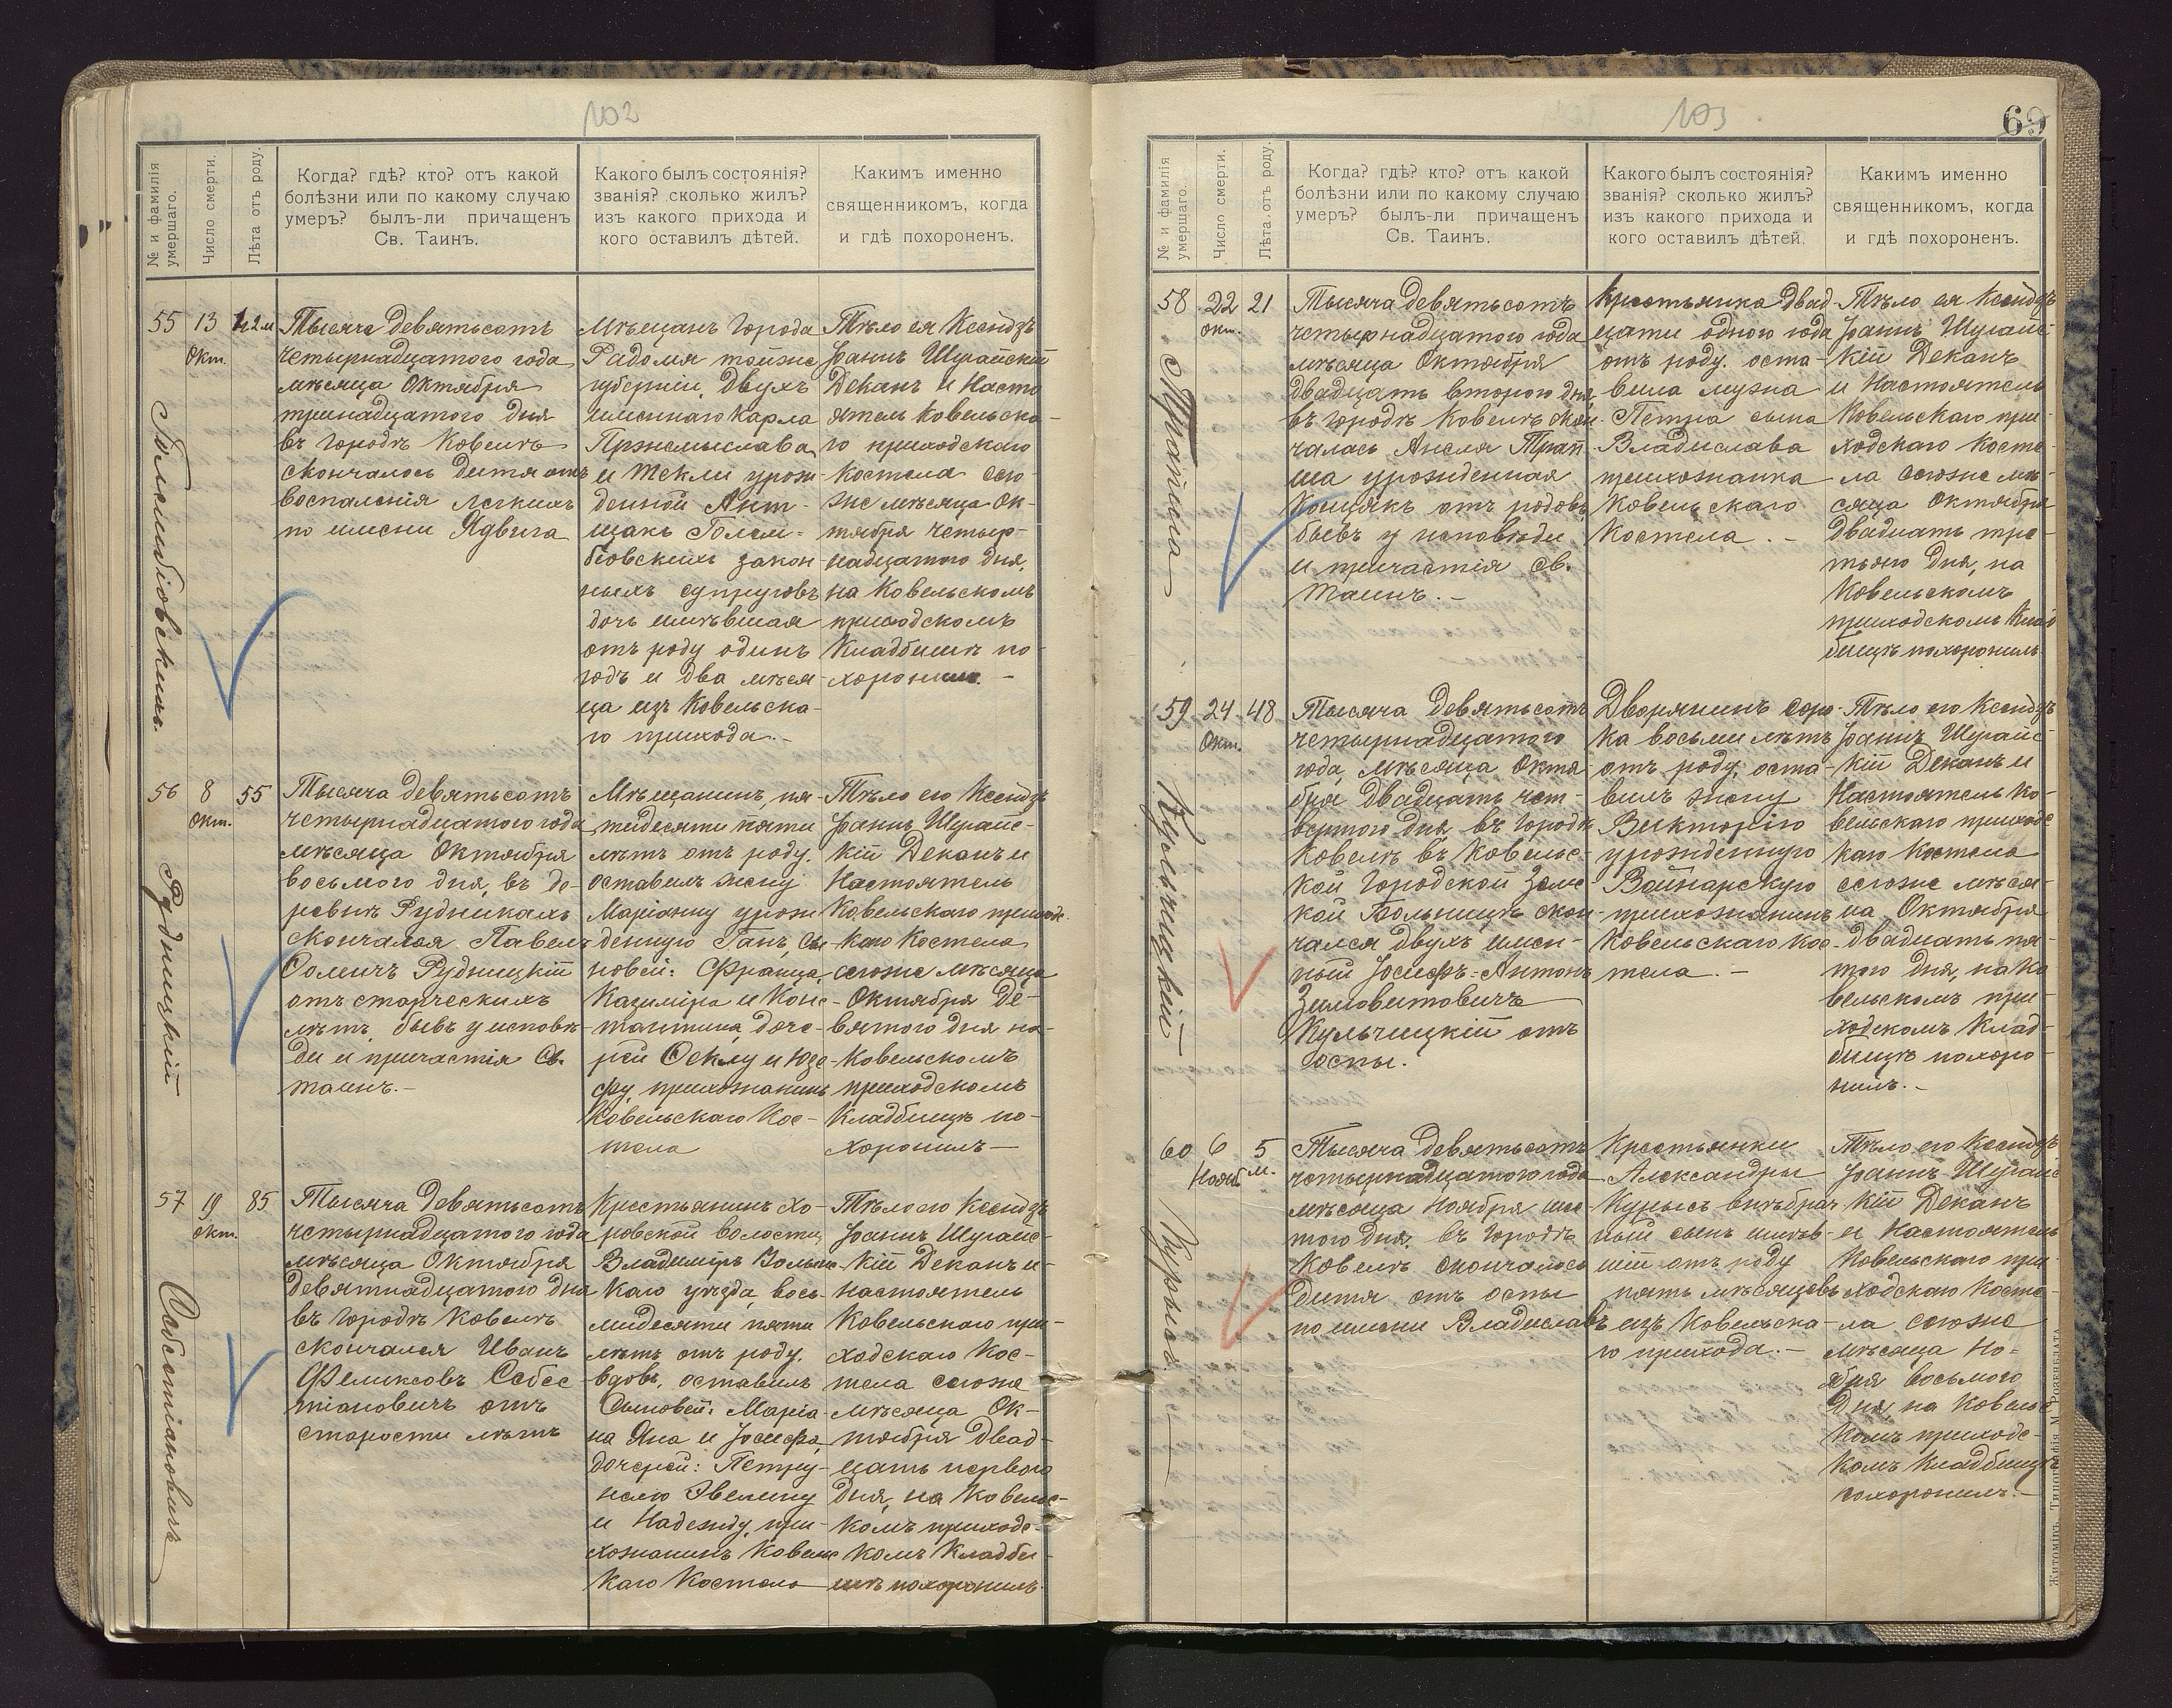 102
№ и фамилія
умершаго.
Число смерти.
Лѣта отъ роду.
Когда? гдѣ? кто? отъ какой
болѣзни или по какому случаю
умеръ? былъ-ли причащенъ
Св. Таинъ.
Какого былъ состоянія?
званія? сколько жилъ?
изъ какого прихода и
кого оставилъ дѣтей.
Какимъ именно
священникомъ, когда
и гдѣ похороненъ.
55
13
Окт.
Тысяча девятьсотъ
четырнадцатого года
мѣсяца Октября
тринадцатого дня
въ городѣ Ковелѣ
скончалось дитя отъ
воспаленія легкихъ
по имени Ядвига
Мѣщанъ города
Радомя тойже
губерніи, двухъ
имяннаго Карла
Пржемыслава
и Текли урож-
денной Ант-
щакъ Голем-
біовскихъ закон
ныхъ супруговъ
дочь имѣвшая
отъ роду одинъ
годъ и два мѣся-
ца изъ Ковельска-
го прихода.-
Тѣло ея Ксендзъ
Іоаннъ Шурайскій
Деканъ и Насто
ятель Ковельска-
го приходскаго
костела сего
же мѣсяца Ок-
тября четыр-
надцатого дня,
на Ковельскомъ
приходскомъ
Кладбищѣ по-
хоронилъ. -
56
8
Окт.
55
Рудницкій
Тысяча девятьсотъ
четырнадцатого года
мѣсяца Октября
восьмого дня, въ де-
ревнѣ Рудникахъ
скончался Павелъ
Рудницкій
отъ старческихъ
лѣтъ, бывъ у исповѣ-
ди и причастія Св.
таинъ.-
Мѣщанинъ, пя-
тидесяти пяти
лѣтъ отъ роду.
оставилъ жену
Маріанну урож
денную Ганъ, сы
новей: Франца,
Казиміра и Конс-
тантина, доче-
рей Феклу и Юзе-
фу, прихожанинъ
Ковельскаго Кос-
тела
Тѣло его Ксендзъ
Іоаннъ Шурайс-
кій Деканъ и
Настоятель
Ковельскаго приходс-
каго Костела
сегоже мѣсяца
Октября де-
вятого дня на-
Ковельскомъ
приходскомъ
Кладбищѣ по-
хоронилъ-
57
19
окт.
85
Себестіановичъ
Тысяча девятьсотъ
четырнадцатого года
мѣсяца Октября
девятнадцатого дня
въ городѣ Ковелѣ
скончался Иванъ
Феликсовъ Себес
тіановичъ отъ
старости лѣтъ
Крестьянинъ Хо-
ровской волости,
Владиміръ Волынс-
каго уѣзда, вось-
мидесяти пяти
лѣтъ отъ роду.
вдовъ, оставилъ
Сыновей: Маріа-
на Яна и Іосифа,
дочерей: Петру-
нелю Эвелину
и Надежду, при-
хожанинъ Ковельс
каго Костела
Тѣло его Ксендзъ
Іоаннъ Шурайс-
кій Деканъ и-
Настоятель
Ковельскаго при-
ходскаго Кос-
тела сегоже
мѣсяца Ок-
тября двад-
цать первого
дня, на Ковельс-
комъ приходс-
комъ Кладби-
щѣ похоронилъ.
103
69
№ и фамилія
умершаго.
Число смерти.
Лѣта отъ роду.
Когда? гдѣ? кто? отъ какой
болѣзни или по какому случаю
умеръ? былъ-ли причащенъ
Св. Таинъ.
Какого былъ состоянія?
званія? сколько жилъ?
изъ какого прихода и
кого оставилъ дѣтей.
Какимъ именно
священникомъ, когда
и гдѣ похороненъ.
58
22
окт.
21
Тысяча девятьсотъ
четырнадцатого года
мѣсяца Октября
двадцать второго дня,
въ городѣ Ковелѣ скон
чалась Анеля
урожденная
отъ родовъ
бывъ у исповѣди
и причастія Св.
Таинъ.-
Крестьянка двад-
цати одного года
отъ роду. оста-
вила мужа
Петра сына
Владислава
прихожанка
Ковельскаго
Костела.-
Тѣло ея Ксендзъ
Іоаннъ Шурайс-
кій Деканъ
и Настоятель
Ковельскаго при-
ходскаго Косте
ла сегоже мѣ-
сяца Октября
двадцать тре-
тьяго дня, на
Ковельскомъ
приходскомъ Клад
бищѣ похоронилъ
59
24
Окт.
48
Кульчицкій
Тысяча девятьсотъ
четырнадцатого
года, мѣсяца Октя-
бря двадцать чет-
вертого дня въ городѣ
Ковелѣ въ Ковельс-
кой городской Земс-
кой Больницѣ скон-
чался двухъ имен-
ный Іосифъ-Антонъ
Зимовитовичъ
Кульчицкій отъ
оспы.
Дворянинъ соро-
ка восьми лѣтъ
отъ роду, оста-
вилъ жену
Викторію
урожденную
Войнарскую
прихожанинъ
Ковельскаго Кос-
тела.-
Тѣло его Ксендзъ
Іоаннъ Шурайс-
кій Деканъ и
Настоятель Ко-
вельскаго приходс
каго Костела
сегоже мѣся-
ца Октября
двадцать пя-
того дня, на Ко
вельскомъ при-
ходскомъ Клад-
бищѣ похоро-
нилъ.-
60
6
Нояб.
5
м.
Тысяча девятьсотъ
четырнадцатого года
мѣсяца Ноября шес
того дня, въ городѣ
Ковелѣ скончалось
дитя отъ оспы
по имени Владиславъ
Крестьянки
Александры
внѣбрач
ный сынъ имѣв-
шій отъ роду
пять мѣсяцевъ
изъ Ковельска-
го прихода.-
Тѣло его Ксендзъ
Іоаннъ Шурайс
кій Деканъ
и Настоятель
Ковельскаго при
ходскаго Косте-
ла сегоже
мѣсяца Но-
ября восьмого
дня на Ковельс
комъ приходс-
комъ Кладбищѣ
похоронилъ.-
Житомiръ. Типографія М. Розенблата